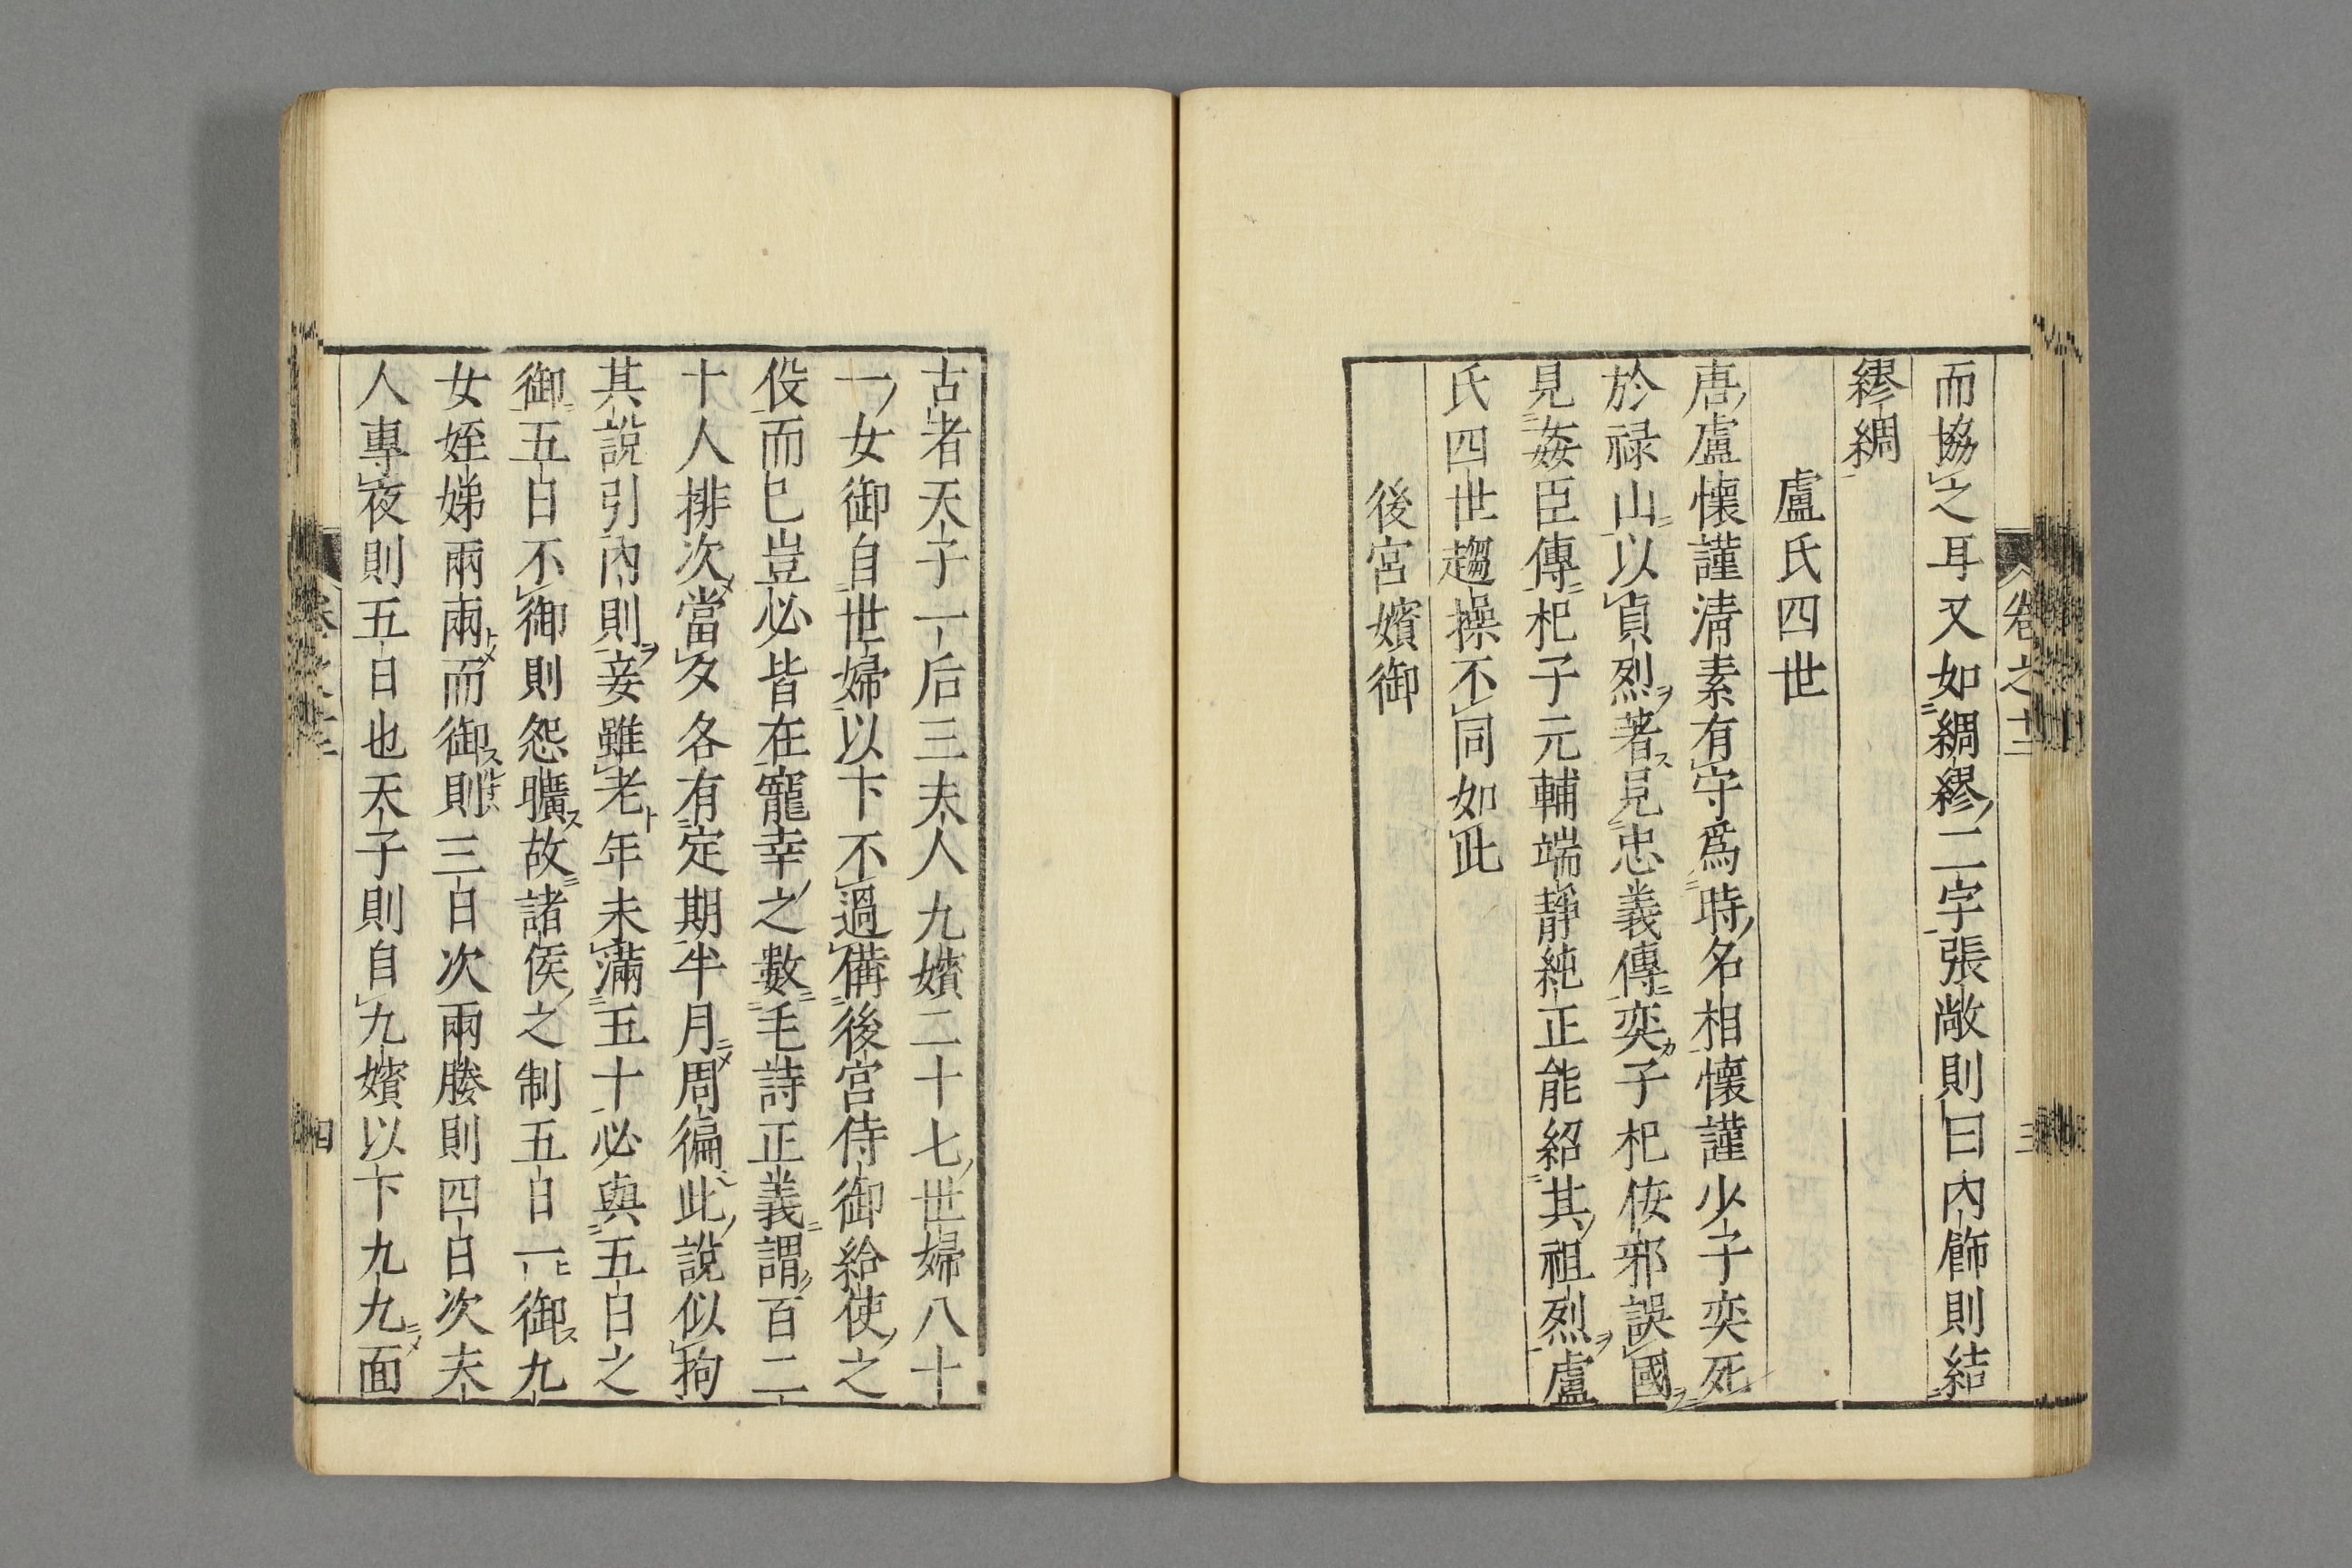 而協之耳又如綢繆二字張敞則曰内飾則結
繆綢
盧氏四世
唐盧懷謹清素有守爲時名相懷謹少子奕死
於禄山以貞烈著見忠義傳奕子杞佞邪誤國
見姦臣傳杞子元輔端靜純正能紹其祖烈盧
氏四世趨操不同如此
後宮嬪御
古者天子一后三夫人九嬪二十七世婦八十
一女御自世婦以下不過備後宮侍御給使之
役而已豈必皆在寵幸之數毛詩正義謂百二
十人排次當夕各有定期半月周徧此說似拘
其說引內則妾雖老年未滿五十必與五日之
御五日不御則怨曠故諸侯之制五日一御九
女姪娣兩兩而御則三日次兩媵則四日次夫
人專夜則五日也天子則自九嬪以下九九面
卷之十二
三
四